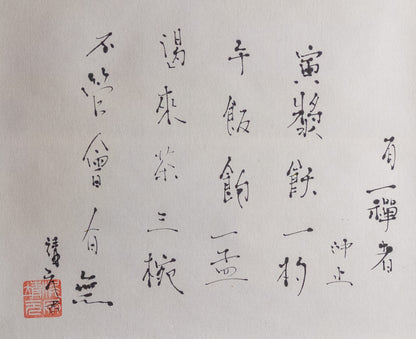 有一禪者
沖止
寅漿飫一杓
午飯飽一盂
渴來茶三椀
不管會有無